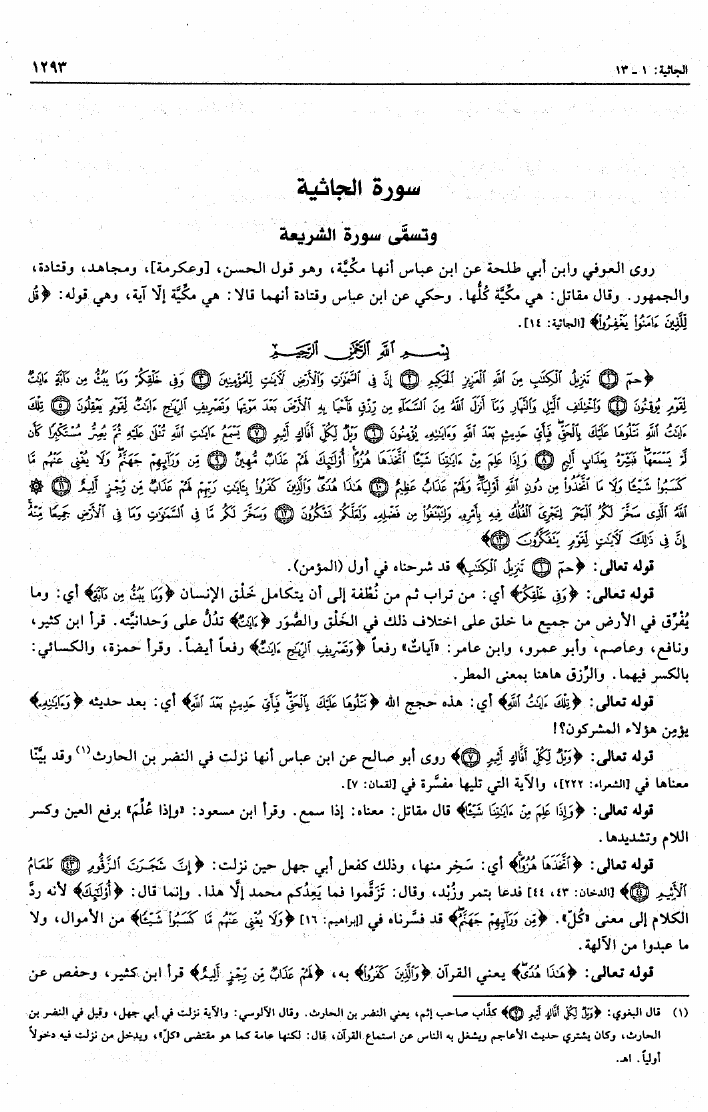 الجاثية: ١ ـ ١٣
١٢٩٣
سورة الجاثية
وتسمَّى سورة الشريعة
روى العوفي وابن أبي طلحة عن ابن عباس أنها مكِّيَّة، وهو قول الحسن، [وعكرمة]، ومجاهد، وقتادة،
والجمهور. وقال مقاتل: هي مكِّيَّة كُلُّها. وحكي عن ابن عباس وقتادة أنهما قالا: هي مكِّيَّة إلّا آية، وهي قوله: ﴿قُل
لِّلَّذِينَ ءَامَنُواْ يَغْفِرُواْ﴾ [الجاثية: ١٤].
بِسْمِ اللَّهِ الرَّحْمَٰنِ الرَّحِيمِ
﴿حمٓ ۝١ تَنزِيلُ الْكِتَٰبِ مِنَ اللَّهِ الْعَزِيزِ الْحَكِيمِ ۝٢ إِنَّ فِى السَّمَٰوَٰتِ وَالْأَرْضِ لَءَايَٰتٍ لِّلْمُؤْمِنِينَ ۝٣ وَفِى خَلْقِكُمْ وَمَا يَبُثُّ مِن دَآبَّةٍ ءَايَٰتٌ
لِّقَوْمٍ يُوقِنُونَ ۝٤ وَاخْتِلَٰفِ الَّيْلِ وَالنَّهَارِ وَمَآ أَنزَلَ اللَّهُ مِنَ السَّمَآءِ مِن رِّزْقٍ فَأَحْيَا بِهِ الْأَرْضَ بَعْدَ مَوْتِهَا وَتَصْرِيفِ الرِّيَٰحِ ءَايَٰتٌ لِّقَوْمٍ يَعْقِلُونَ ۝٥ تِلْكَ
ءَايَٰتُ اللَّهِ نَتْلُوهَا عَلَيْكَ بِالْحَقِّ فَبِأَىِّ حَدِيثٍ بَعْدَ اللَّهِ وَءَايَٰتِهِۦ يُؤْمِنُونَ ۝٦ وَيْلٌ لِّكُلِّ أَفَّاكٍ أَثِيمٍ ۝٧ يَسْمَعُ ءَايَٰتِ اللَّهِ تُتْلَىٰ عَلَيْهِ ثُمَّ يُصِرُّ مُسْتَكْبِرًا كَأَن
لَّمْ يَسْمَعْهَا فَبَشِّرْهُ بِعَذَابٍ أَلِيمٍ ۝٨ وَإِذَا عَلِمَ مِنْ ءَايَٰتِنَا شَيْئًا اتَّخَذَهَا هُزُوًا أُوْلَٰٓئِكَ لَهُمْ عَذَابٌ مُّهِينٌ ۝٩ مِّن وَرَآئِهِمْ جَهَنَّمُ وَلَا يُغْنِى عَنْهُم مَّا
كَسَبُواْ شَيْئًا وَلَا مَا اتَّخَذُواْ مِن دُونِ اللَّهِ أَوْلِيَآءَ وَلَهُمْ عَذَابٌ عَظِيمٌ ۝١٠ هَٰذَا هُدًى وَالَّذِينَ كَفَرُواْ بِـَٔايَٰتِ رَبِّهِمْ لَهُمْ عَذَابٌ مِّن رِّجْزٍ أَلِيمٌ ۝١١ ۞
اللَّهُ الَّذِى سَخَّرَ لَكُمُ الْبَحْرَ لِتَجْرِىَ الْفُلْكُ فِيهِ بِأَمْرِهِۦ وَلِتَبْتَغُواْ مِن فَضْلِهِۦ وَلَعَلَّكُمْ تَشْكُرُونَ ۝١٢ وَسَخَّرَ لَكُم مَّا فِى السَّمَٰوَٰتِ وَمَا فِى الْأَرْضِ جَمِيعًا مِّنْهُ
إِنَّ فِى ذَٰلِكَ لَءَايَٰتٍ لِّقَوْمٍ يَتَفَكَّرُونَ ۝١٣﴾
قوله تعالى: ﴿حمٓ ۝١ تَنزِيلُ الْكِتَٰبِ﴾ قد شرحناه في أول (المؤمن).
قوله تعالى: ﴿وَفِى خَلْقِكُمْ﴾ أي: من تراب ثم من نُطْفة إلى أن يتكامل خَلْق الإنسان ﴿وَمَا يَبُثُّ مِن دَآبَّةٍ﴾ أي: وما
يُفْرِّق في الأرض من جميع ما خلق على اختلاف ذلك في الخَلْق والصُّوَر ﴿ءَايَٰتٌ﴾ تدُلُّ على وَحدانيَّته. قرأ ابن كثير،
ونافع، وعاصم، وأبو عمرو، وابن عامر: «آياتٌ» رفعاً ﴿وَتَصْرِيفِ الرِّيَٰحِ ءَايَٰتٌ﴾ رفعاً أيضاً. وقرأ حمزة، والكسائي:
بالكسر فيهما. والرِّزق هاهنا بمعنى المطر.
قوله تعالى: ﴿تِلْكَ ءَايَٰتُ اللَّهِ﴾ أي: هذه حجج الله ﴿نَتْلُوهَا عَلَيْكَ بِالْحَقِّ فَبِأَىِّ حَدِيثٍ بَعْدَ اللَّهِ﴾ أي: بعد حديثه ﴿وَءَايَٰتِهِۦ﴾
يؤمِن هؤلاء المشركون؟!
قوله تعالى: ﴿وَيْلٌ لِّكُلِّ أَفَّاكٍ أَثِيمٍ ۝٧﴾ روى أبو صالح عن ابن عباس أنها نزلت في النضر بن الحارث(١) وقد بيَّنّا
معناها في [الشعراء: ٢٢٢]، والآية التي تليها مفسَّرة في [لقمان: ٧].
قوله تعالى: ﴿وَإِذَا عَلِمَ مِنْ ءَايَٰتِنَا شَيْئًا﴾ قال مقاتل: معناه: إذا سمع. وقرأ ابن مسعود: «وإذا عُلِّمَ» برفع العين وكسر
اللام وتشديدها.
قوله تعالى: ﴿اتَّخَذَهَا هُزُوًا﴾ أي: سَخِر منها، وذلك كفعل أبي جهل حين نزلت: ﴿إِنَّ شَجَرَتَ الزَّقُّومِ ۝٤٣ طَعَامُ
الْأَثِيمِ ۝٤٤﴾ [الدخان: ٤٣، ٤٤] فدعا بتمر وزُبْد، وقال: تَزَقَّموا فما يَعِدُكم محمد إلّا هذا. وإنما قال: ﴿أُوْلَٰٓئِكَ﴾ لأنه ردَّ
الكلام إلى معنى «كُلّ». ﴿مِّن وَرَآئِهِمْ جَهَنَّمُ﴾ قد فسَّرناه في [إبراهيم: ١٦] ﴿وَلَا يُغْنِى عَنْهُم مَّا كَسَبُواْ شَيْئًا﴾ من الأموال، ولا
ما عبدوا من الآلهة.
قوله تعالى: ﴿هَٰذَا هُدًى﴾ يعني القرآن ﴿وَالَّذِينَ كَفَرُواْ﴾ به، ﴿لَهُمْ عَذَابٌ مِّن رِّجْزٍ أَلِيمٌ﴾ قرأ ابن كثير، وحفص عن
(١) قال البغوي: ﴿وَيْلٌ لِّكُلِّ أَفَّاكٍ أَثِيمٍ ۝٧﴾ كذَّاب صاحب إثم، يعني النضر بن الحارث. وقال الآلوسي: والآية نزلت في أبي جهل، وقيل في النضر بن
الحارث، وكان يشتري حديث الأعاجم ويشغل به الناس عن استماع القرآن، قال: لكنها عامة كما هو مقتضى «كل»، ويدخل من نزلت فيه دخولاً
أولياً. اهـ.